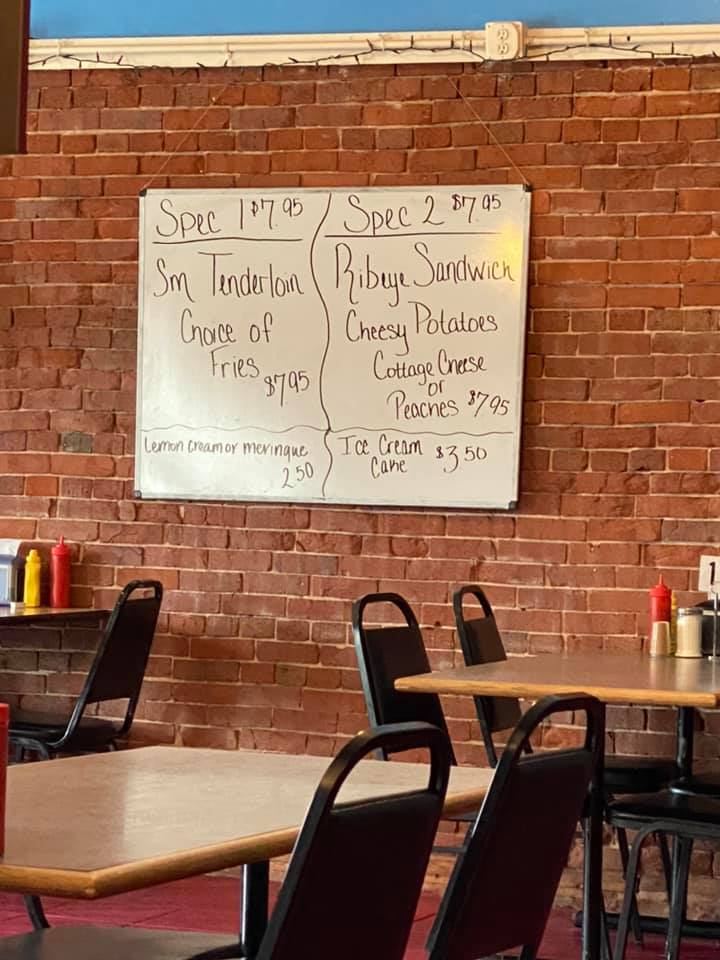 Spec 1 $7.95
Sm Tenderloin
Choice of
Fries
$7.95
Spec 2 $7.95
Ribeye Sandwich
Cheesy Potatoes
Cottage Cheese
or
Peaches $7.95
Lemon cream or meringue
2.50
Ice Cream
Cake $3.50
1